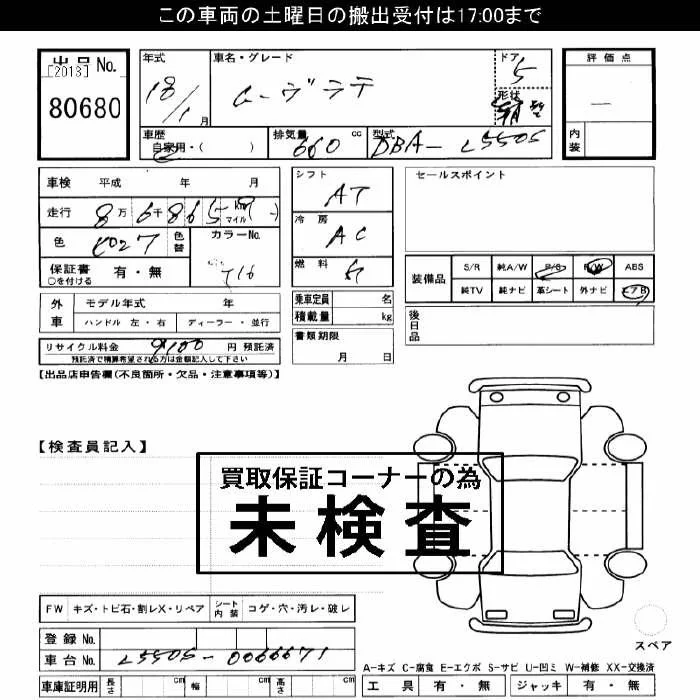 この車両の土曜日の搬出受付は17:00まで
出品 No.
[2013]
80680
年式
18/1月
車名・グレード
ムーヴラテ
ドア
5
形状
評価点
—
内装
車歴
自家用・( )
排気量
660 cc
型式
DBA-L550S
車検 平成 年 月
走行 8万 6千 865 km マイル ( )
色
色替
カラーNo.
T16
保証書 有・無
○を付ける
シフト
AT
冷房
AC
燃料
ガ
セールスポイント
装備品
S/R 純A/W P/S P/W ABS
純TV 純ナビ 革シート 外ナビ エアB
外車
モデル年式 年
ハンドル 左・右 ディーラー・並行
乗車定員 名
積載量 kg
後日品
リサイクル料金 9100 円 預託済
預託済で精算希望される方は金額記入して下さい
書類期限
月 日
【出品店申告欄(不良箇所・欠品・注意事項等)】
【検査員記入】
買取保証コーナーの為
未検査
FW キズ・トビ石・割レX・リペア シート内装 コゲ・穴・汚レ・破レ
登録 No.
車台 No. L550S-0066671
車庫証明用 長さ cm 幅 cm 高さ cm
スペア
A-キズ C-腐食 E-エクボ S-サビ U-凹ミ W-補修 XX-交換済
工具 有・無 ジャッキ 有・無